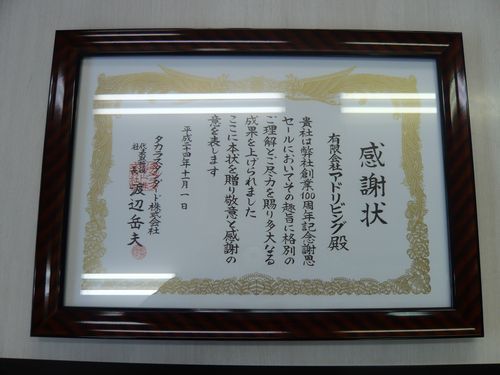 感謝状
有限会社アドリビング殿
貴社は弊社創業100周年記念謝恩
セールにおいてその趣旨に格別の
ご理解とご尽力を賜り多大なる
成果を上げられました
ここに本状を贈り敬意と感謝の
意を表します
平成二十四年十一月一日
タカラスタンダード株式会社
代表取締役
社長 渡辺岳夫